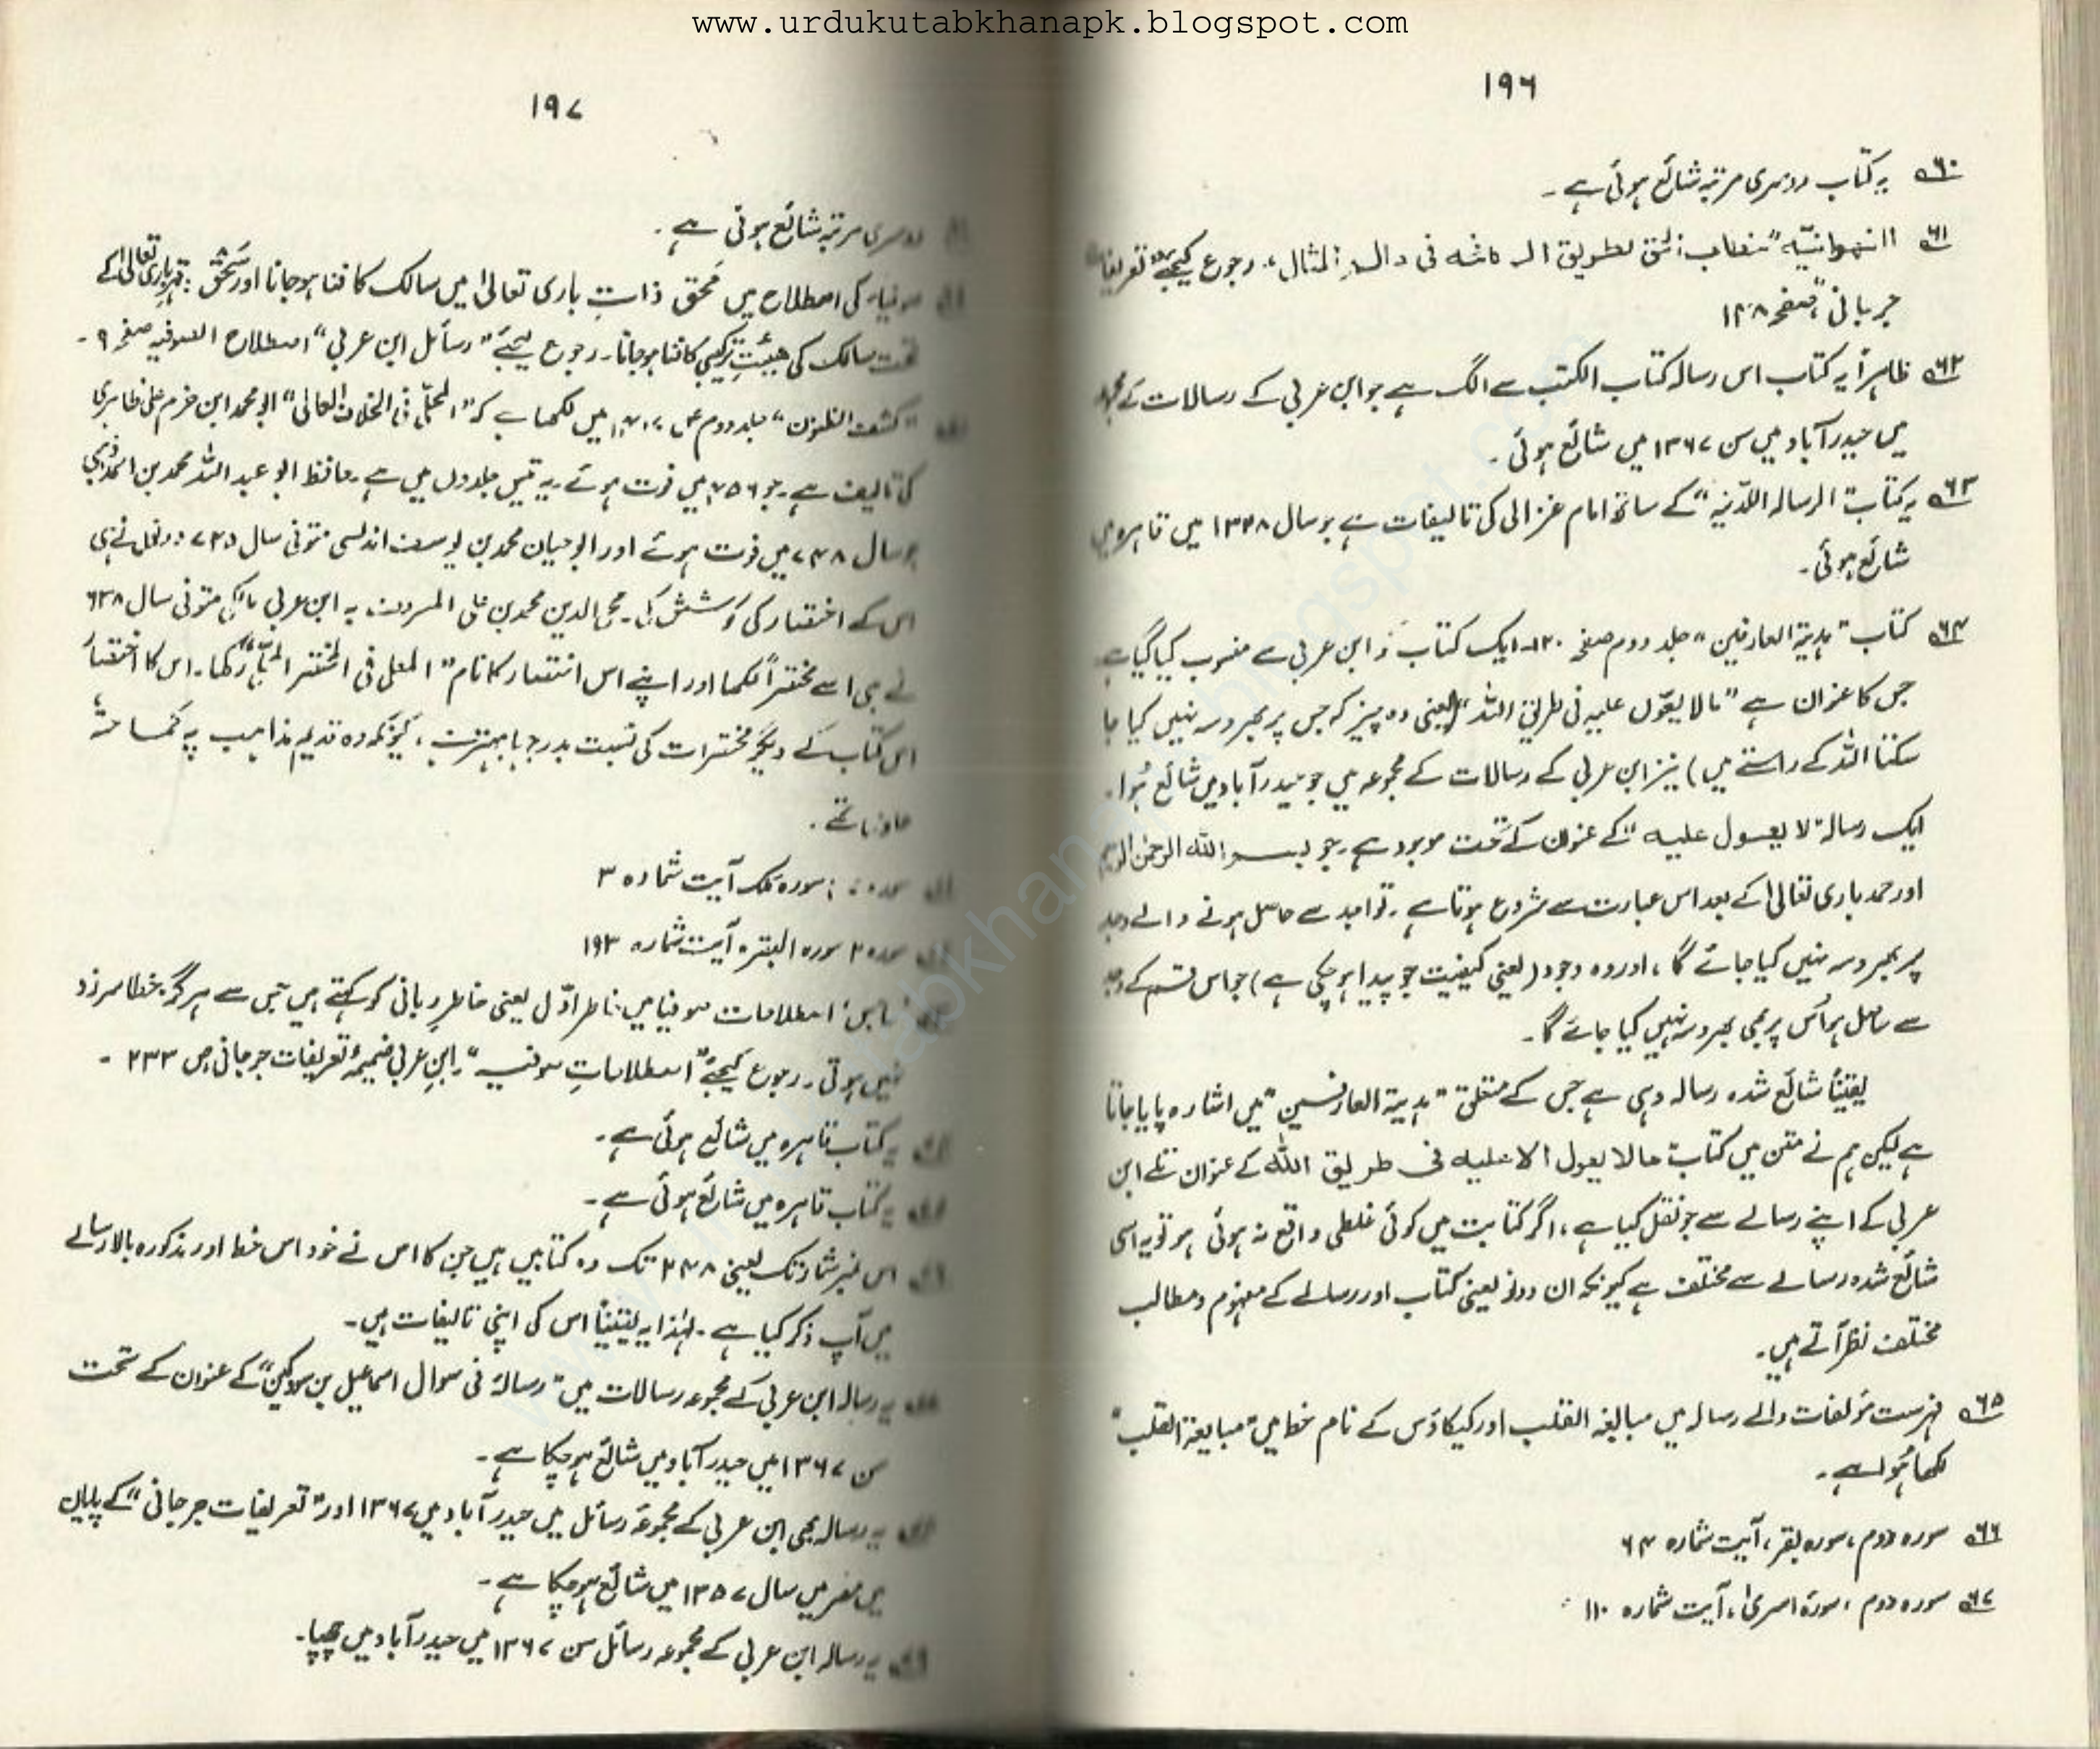 www.urdukutabkhanapk.blogspot.com
۱۹۶
۶۰ یہ کتاب دوسری مرتبہ شائع ہوئی ہے۔
۶۱ رجوع کیجئے "تعریفات
صفحہ ۱۴۸
۶۲ ظاہراً یہ کتاب اس رسالہ کتاب الکتب سے الگ ہے جو ابن عربی کے رسالات کے مجموعہ
میں حیدرآباد میں سن ۱۳۶۷ میں شائع ہوئی۔
۶۳ یہ کتاب "الرسالہ اللدنیہ" کے ساتھ امام غزالی کی تالیفات سے ہے جو سال ۱۳۲۸ میں قاہرہ میں
شائع ہوئی۔
۶۴ کتاب "ہدیۃ العارفین" جلد دوم صفحہ ۱۲۰۔ ایک کتاب ابن عربی سے منسوب کیا گیا ہے۔
جس کا عنوان ہے "مالا یعوّل علیہ فی طریق اللہ" (یعنی وہ چیز کہ جس پر بھروسہ نہیں کیا جا
سکتا اللہ کے راستے میں) نیز ابن عربی کے رسالات کے مجموعہ میں جو حیدرآباد میں شائع ہُوا۔
ایک رسالہ "لا یعول علیہ" کے عنوان کے تحت موجود ہے۔ جو بسم اللہ الرحمٰن الرحیم
اور حمد باری تعالیٰ کے بعد اس عبارت سے شروع ہوتا ہے۔ تواجد سے حاصل ہونے والے وجد
پر بھروسہ نہیں کیا جائے گا، اور وہ وجود (یعنی کیفیت جو پیدا ہو چکی ہے) جو اس قسم کے وجد
سے حاصل ہو اُس پر بھی بھروسہ نہیں کیا جائے گا۔
یقیناً شائع شدہ رسالہ وہی ہے جس کے متعلق "ہدیۃ العارفین" میں اشارہ پایا جاتا
ہے لیکن ہم نے متن میں کتاب مالا یعول الا علیہ فی طریق اللہ کے عنوان تلے ابن
عربی کے اپنے رسالے سے جو نقل کیا ہے، اگر کتابت میں کوئی غلطی واقع نہ ہوئی ہو تو یہ اسی
شائع شدہ رسالے سے مختلف ہے کیونکہ ان دونو یعنی کتاب اور رسالے کے مفہوم و مطالب
مختلف نظر آتے ہیں۔
۶۵ فہرست مؤلفات والے رسالہ میں مبالغہ القلب اور کیکاؤس کے نام خط میں "مبایعۃ القلب"
لکھا ہُوا ہے۔
۶۶ سورہ دوم، سورہ بقر، آیت شمارہ ۶۴
۶۷ سورہ دوم، سورۃ اسریٰ، آیت شمارہ ۱۱۰
۱۹۷
دوسری مرتبہ شائع ہوئی ہے۔
صوفیاء کی اصطلاح میں مَحق ذاتِ باری تعالیٰ میں سالک کا فنا ہو جانا اور سَحَق: قہرِ باری تعالیٰ کے
تحت سالک کی ہیئتِ ترکیبی کا فنا ہو جانا۔ رجوع کیجئے "رسائل ابن عربی" اصطلاح الصوفیہ صفحہ ۹۔
"کشف الظنون" جلد دوم ص ۱۶۱۷ میں لکھا ہے کہ "المحلّی فی الخلاف العالی" ابو محمد ابن حزم علی ظاہری
کی تالیف ہے۔ جو ۴۵۶ میں فوت ہوئے۔ یہ تیس جلدوں میں ہے۔ حافظ ابو عبد اللہ محمد بن احمد ذہبی
جو سال ۷۴۸ میں فوت ہوئے اور ابو حیان محمد بن یوسف اندلسی متوفی سال ۷۴۵ دونوں نے ہی
اس کے اختصار کی کوشش کی۔ محی الدین محمد بن علی المعروف بہ ابن عربی متوفی سال ۶۳۸
نے بھی اسے مختصراً لکھا اور اپنے اس اختصار کا نام "المعلی فی المختصر المحلّٰی" رکھا۔ اس کا اختصار
اس کتاب کے دیگر مختصرات کی نسبت بدرجہا بہتر ہے، کیونکہ وہ قدیم مذاہب پہ کماحقہٗ
حاوی تھے۔
سورہ ملک آیت شمارہ ۳
سورہ البقرہ آیت شمارہ ۱۹۳
اصطلاحات صوفیا میں خاطر اوّل یعنی خاطر ربانی کو کہتے ہیں جس سے ہرگز خطا سرزد
نہیں ہوتی۔ رجوع کیجئے "اصطلاحاتِ صوفیہ" ابن عربی ضمیمۂ تعریفات جرجانی ص ۲۳۳۔
یہ کتاب قاہرہ میں شائع ہوئی ہے۔
یہ کتاب قاہرہ میں شائع ہوئی ہے۔
اس نمبر شمار تک یعنی ۲۴۸ تک وہ کتابیں ہیں جن کا اس نے خود اس خط اور مذکورہ بالا رسالے
میں آپ ذکر کیا ہے۔ لہٰذا یہ یقیناً اس کی اپنی تالیفات ہیں۔
یہ رسالہ ابن عربی کے مجموعہ رسالات میں "رسالۃ فی سوال اسماعیل بن سودکین" کے عنوان کے تحت
سن ۱۳۶۷ میں حیدرآباد میں شائع ہو چکا ہے۔
یہ رسالہ بھی ابن عربی کے مجموعۂ رسائل میں حیدرآباد میں ۱۳۶۷ اور "تعریفات جرجانی" کے پایان
میں مصر میں سال ۱۳۵۷ میں شائع ہو چکا ہے۔
یہ رسالہ ابن عربی کے مجموعہ رسائل سن ۱۳۶۷ میں حیدرآباد میں چھپا۔